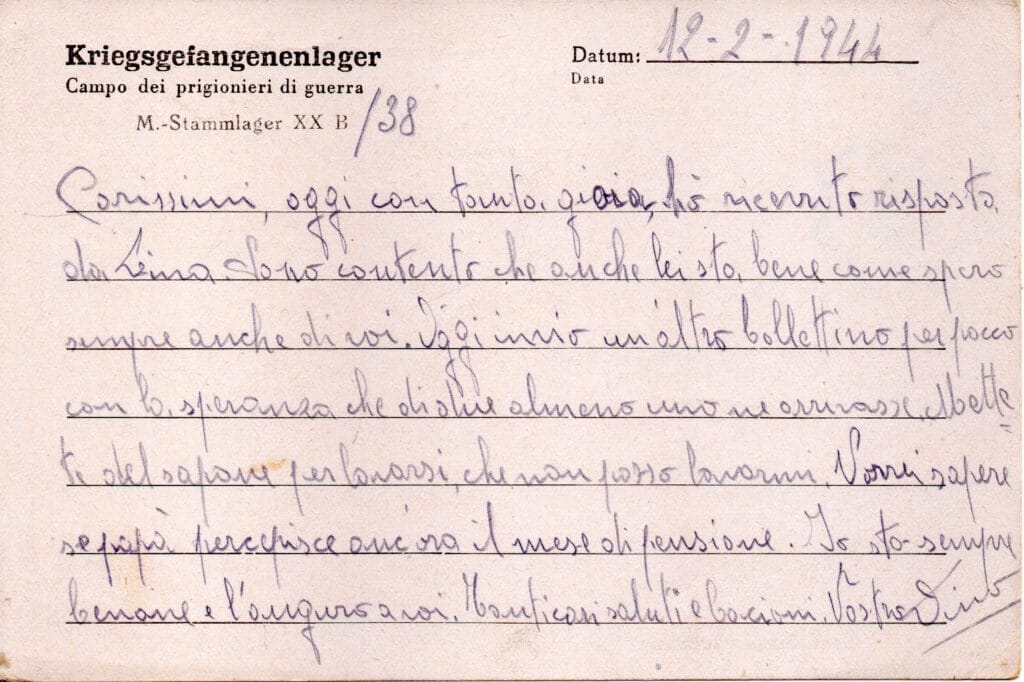 Kriegsgefangenenlager
Campo dei prigionieri di guerra
M.-Stammlager XX B /38
Datum: 12-2-1944
Data
Carissimi, oggi con tanta gioia, hò ricevuto risposta
da Lina. Sono contento che anche lei sta bene come spero
sempre anche di voi. Oggi invio un'altro bollettino per pacco
con la speranza che di due almeno uno ne arrivasse. Mette=
te del sapone per lavarsi, che non posso lavarmi. Vorrei sapere
se papà percepisce ancora il mese di pensione. Io sto sempre
benone e l'auguro a voi. Tanti cari saluti e bacioni. Vostro Dino